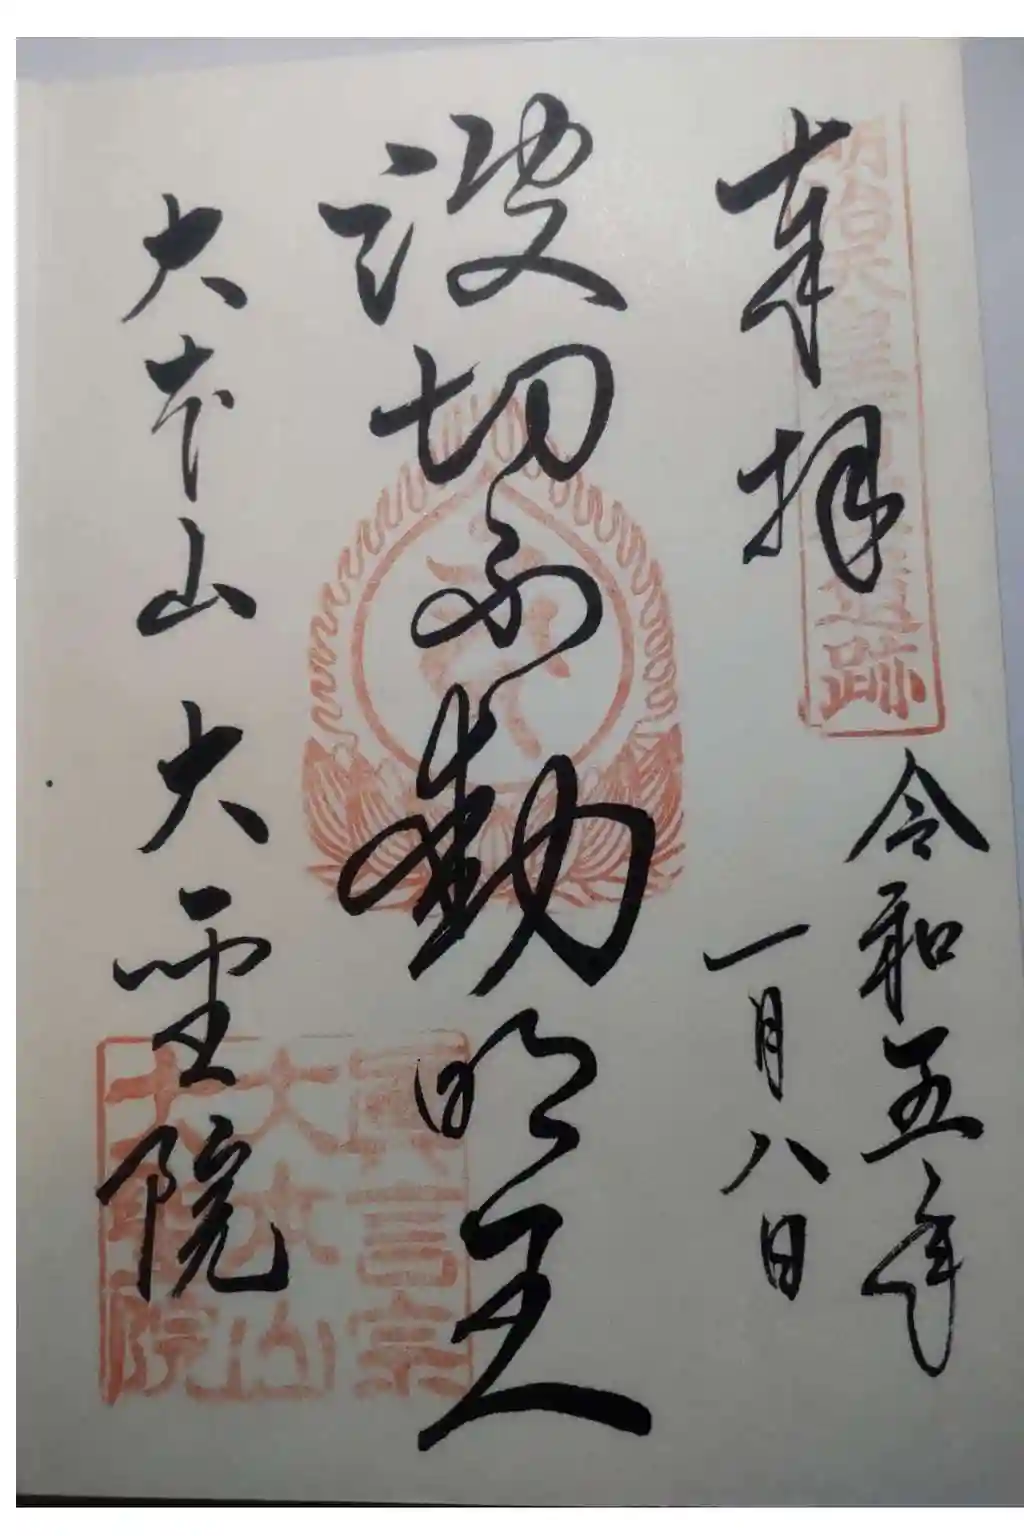 奉拝
明治天皇 遺跡
令和五年
一月八日
波切不動明王
大本山 大聖院
眞言宗
大本山
大聖院